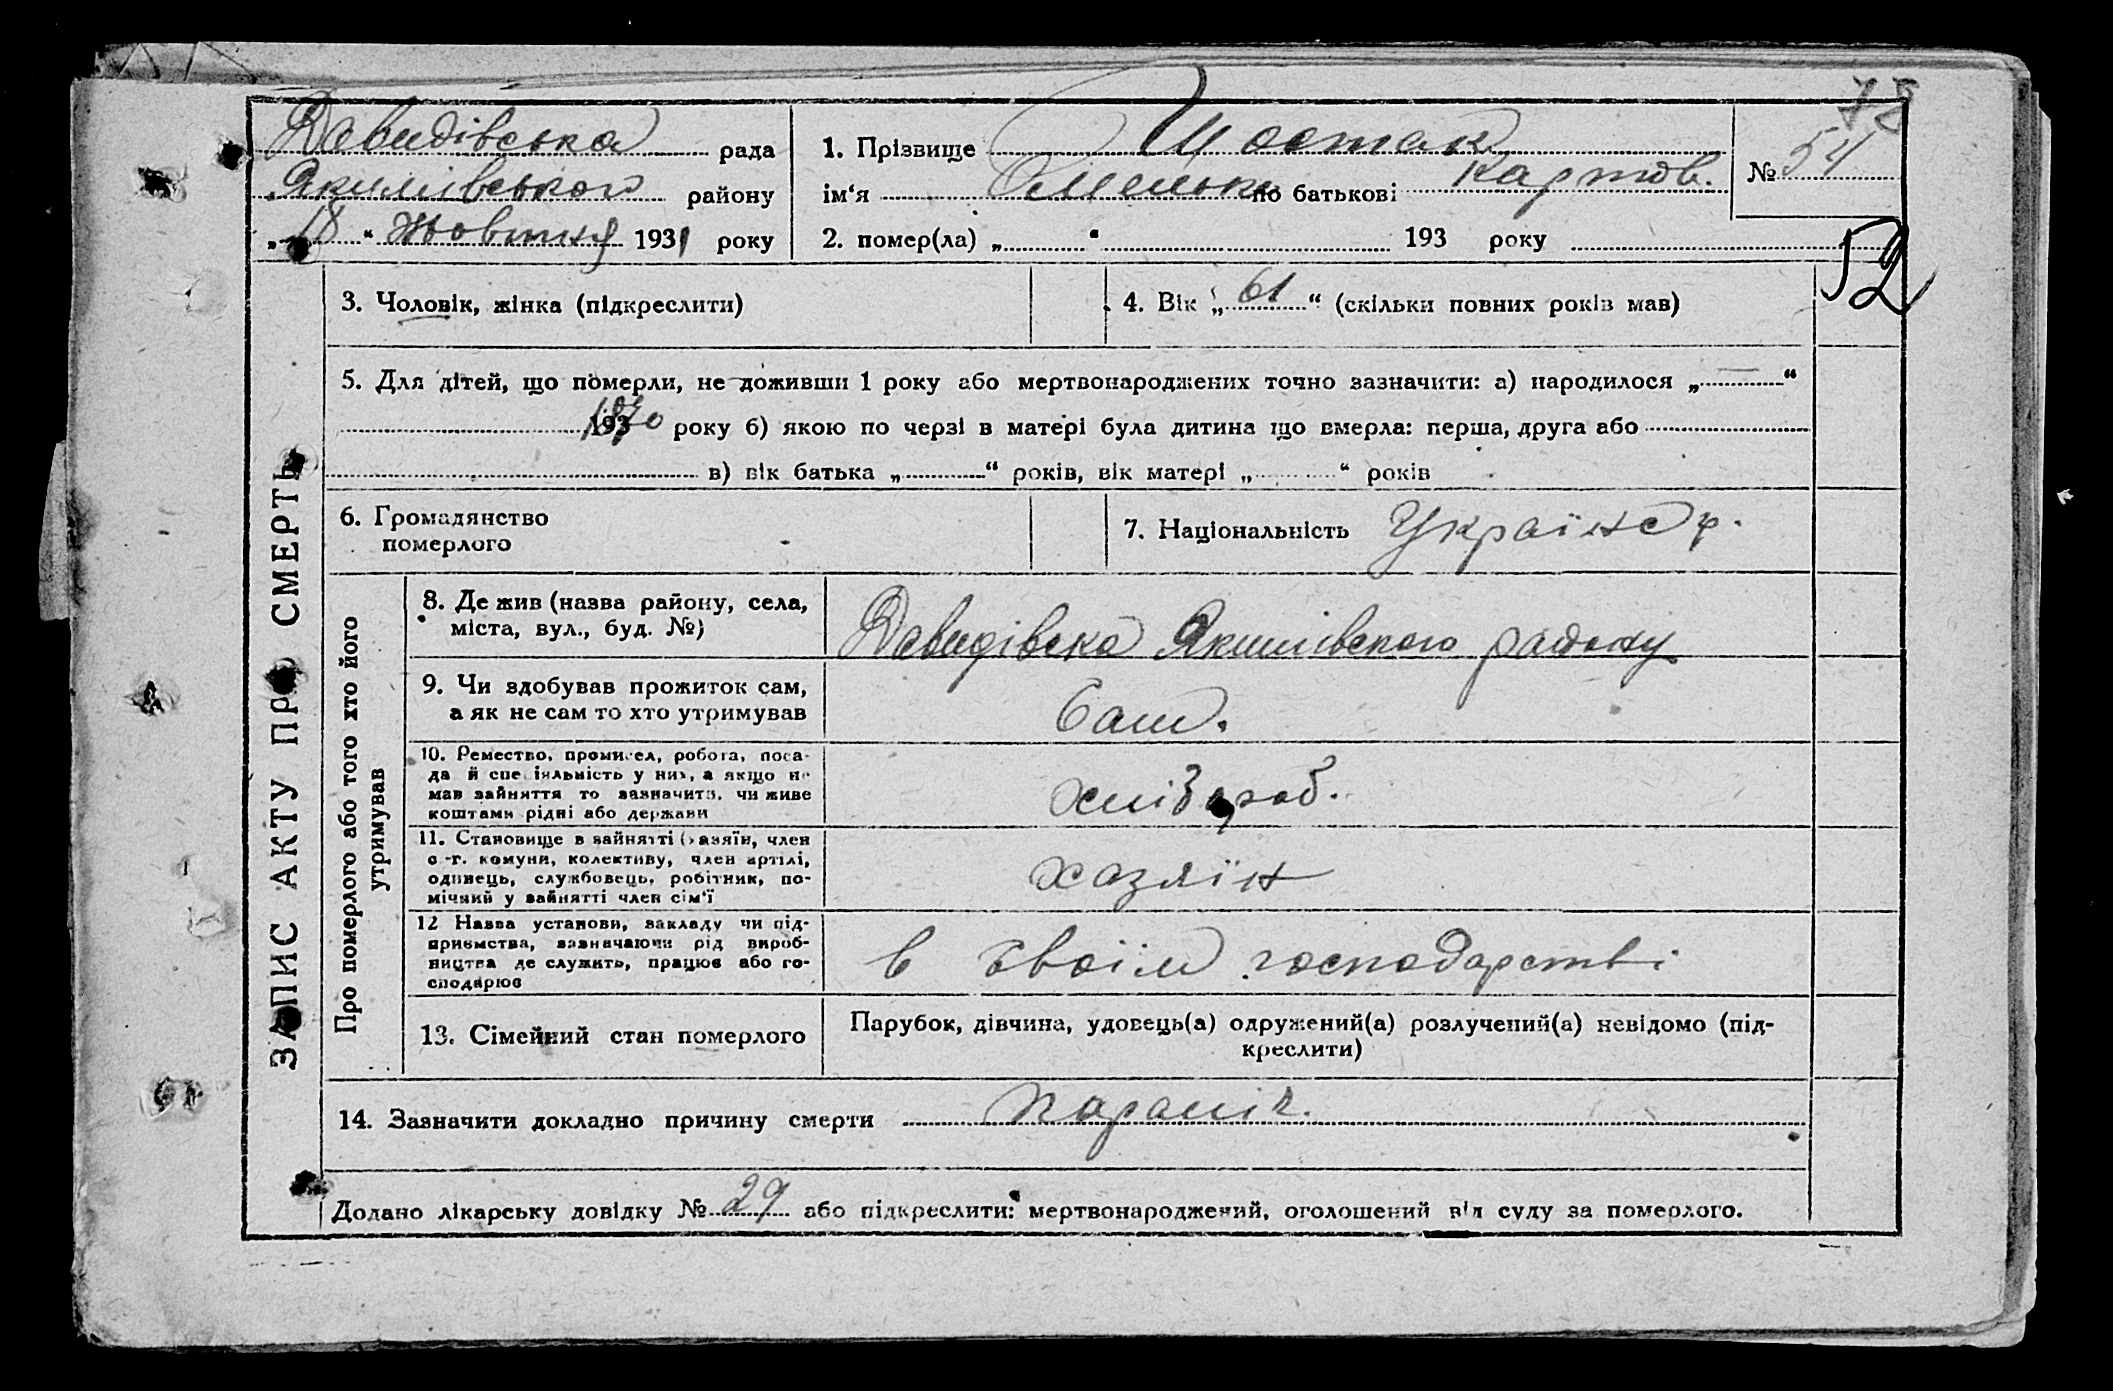 75
Давидівська рада
Якимівського району
„18“ Жовтня 1931 року
1. Прізвище Шостак
ім‘я Омелько по батькові Карпов.
№ 54
2. помер(ла) „ “ 193 року
52
ЗАПИС АКТУ ПРО СМЕРТЬ
3. Чоловік, жінка (підкреслити)
4. Вік „61“ (скільки повних років мав)
5. Для дітей, що померли, не доживши 1 року або мертвонароджених точно зазначити: а) народилося „—“
1870 року б) якою по черзі в матері була дитина що вмерла: перша, друга або
в) вік батька „ “ років, вік матері „ “ років
6. Громадянство
померлого
7. Національність Українс р.
Про померлого або того хто його
утримував
8. Де жив (назва району, села,
міста, вул., буд. №)
Давидівка Якимівского району
9. Чи здобував прожиток сам,
а як не сам то хто утримував
Сам.
10. Ремество, промисел, робота, поса-
да й спеціяльність у них, а якщо не
мав зайняття то зазначити, чи живе
коштами рідні або держави
хлібороб.
11. Становище в зайнятті (хазяїн, член
с.-г. комуни, колективу, член артілі,
одинець, службовець, робітник, по-
мічний у зайнятті член сім‘ї
хазяїн
12 Назва установи, закладу чи під-
приємства, зазначаючи рід вироб-
ництва де служить, працює або го-
сподарює
в своїм господарстві
13. Сімейний стан померлого
Парубок, дівчина, удовець(а) одружений(а) розлучений(а) невідомо (під-
креслити)
14. Зазначити докладно причину смерти параліч.
Додано лікарську довідку № 29 або підкреслити: мертвонароджений, оголошений від суду за померлого.